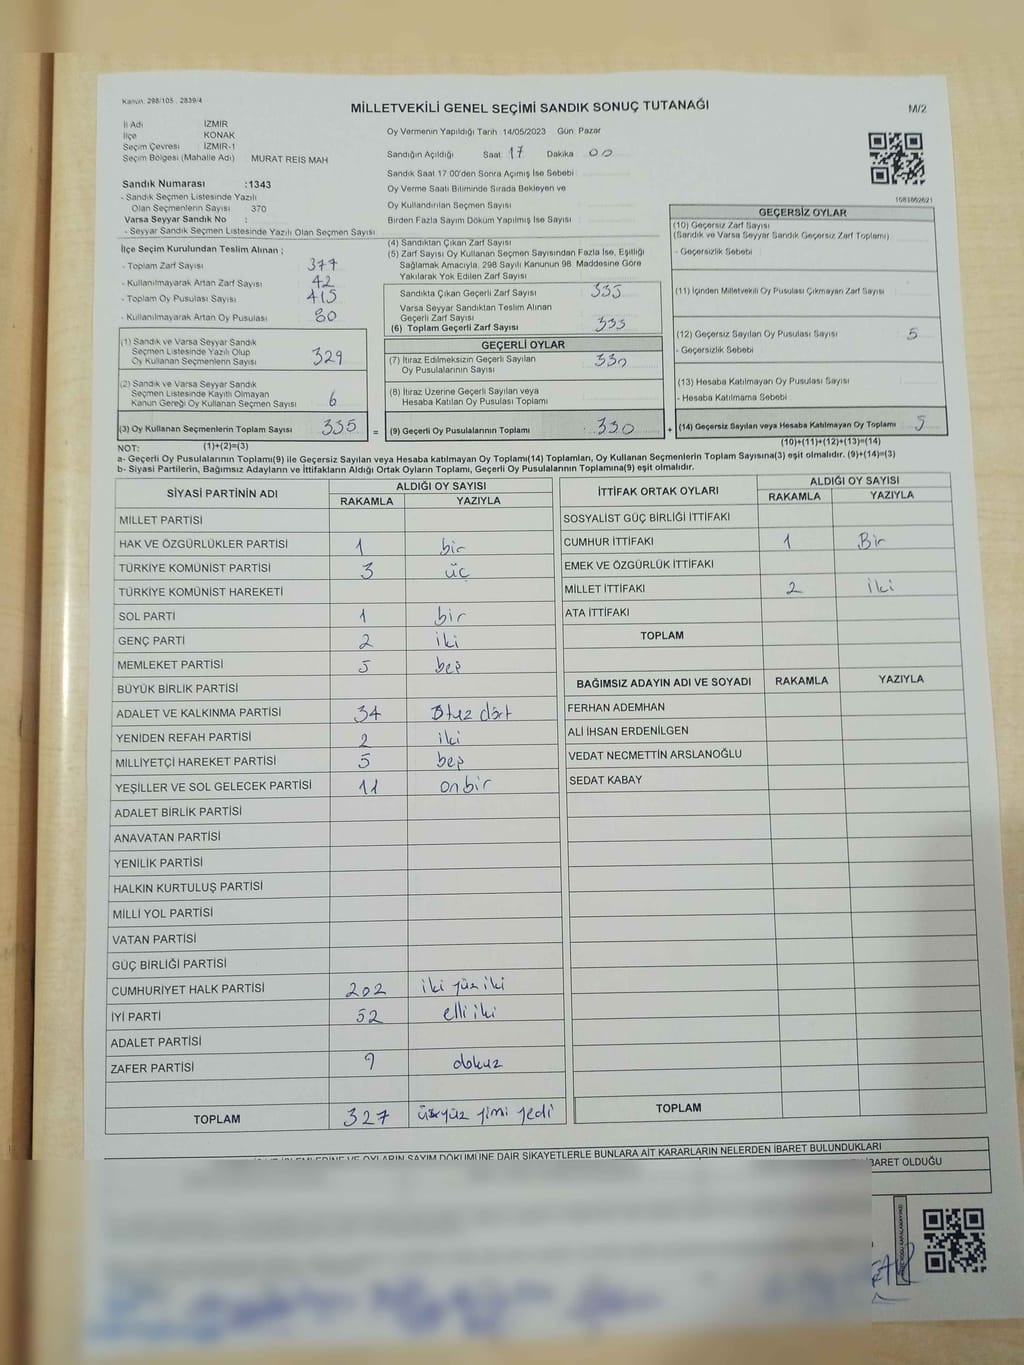 Kanun: 298/105 , 2839/4
MİLLETVEKİLİ GENEL SEÇİMİ SANDIK SONUÇ TUTANAĞI
M/2
İl Adı İZMİR
İlçe KONAK
Seçim Çevresi İZMİR-1
Seçim Bölgesi (Mahalle Adı) MURAT REIS MAH
Sandık Numarası :1343
- Sandık Seçmen Listesinde Yazılı
Olan Seçmenlerin Sayısı : 370
Varsa Seyyar Sandık No :
- Seyyar Sandık Seçmen Listesinde Yazılı Olan Seçmen Sayısı :
Oy Vermenin Yapıldığı Tarih 14/05/2023 Gün Pazar
Sandığın Açıldığı Saat 17 Dakika 00
Sandık Saat 17 00'den Sonra Açımış İse Sebebi
Oy Verme Saati Bitiminde Sırada Bekleyen ve
Oy Kullandırılan Seçmen Sayısı
Birden Fazla Sayım Döküm Yapılmış İse Sayısı
1083862621
İlçe Seçim Kurulundan Teslim Alınan ;
- Toplam Zarf Sayısı 377
- Kullanılmayarak Artan Zarf Sayısı 42
- Toplam Oy Pusulası Sayısı 415
- Kullanılmayarak Artan Oy Pusulası 80
(1) Sandık ve Varsa Seyyar Sandık
Seçmen Listesinde Yazılı Olup
Oy Kullanan Seçmenlerin Sayısı 329
(2) Sandık ve Varsa Seyyar Sandık
Seçmen Listesinde Kayıtlı Olmayan
Kanun Gereği Oy Kullanan Seçmen Sayısı 6
(3) Oy Kullanan Seçmenlerin Toplam Sayısı 335 =
(4) Sandıktan Çıkan Zarf Sayısı
(5) Zarf Sayısı Oy Kullanan Seçmen Sayısından Fazla İse, Eşitliği
Sağlamak Amacıyla, 298 Sayılı Kanunun 98. Maddesine Göre
Yakılarak Yok Edilen Zarf Sayısı
Sandıkta Çıkan Geçerli Zarf Sayısı 335
Varsa Seyyar Sandıktan Teslim Alınan
Geçerli Zarf Sayısı
(6) Toplam Geçerli Zarf Sayısı 335
GEÇERLİ OYLAR
(7) İtiraz Edilmeksizin Geçerli Sayılan
Oy Pusulalarının Sayısı 330
(8) İtiraz Üzerine Geçerli Sayılan veya
Hesaba Katılan Oy Pusulası Toplamı
(9) Geçerli Oy Pusulalarının Toplamı 330 +
GEÇERSİZ OYLAR
(10) Geçersiz Zarf Sayısı
(Sandık ve Varsa Seyyar Sandık Geçersiz Zarf Toplamı)
- Geçersizlik Sebebi
(11) İçinden Milletvekili Oy Pusulası Çıkmayan Zarf Sayısı
(12) Geçersiz Sayılan Oy Pusulası Sayısı 5
- Geçersizlik Sebebi
(13) Hesaba Katılmayan Oy Pusulası Sayısı
- Hesaba Katılmama Sebebi
(14) Geçersiz Sayılan veya Hesaba Katılmayan Oy Toplamı 5
NOT: (1)+(2)=(3)
(10)+(11)+(12)+(13)=(14)
a- Geçerli Oy Pusulalarının Toplamı(9) ile Geçersiz Sayılan veya Hesaba katılmayan Oy Toplamı(14) Toplamları, Oy Kullanan Seçmenlerin Toplam Sayısına(3) eşit olmalıdır. (9)+(14)=(3)
b- Siyasi Partilerin, Bağımsız Adayların ve İttifakların Aldığı Ortak Oyların Toplamı, Geçerli Oy Pusulalarının Toplamına(9) eşit olmalıdır.
SİYASİ PARTİNİN ADI ALDIĞI OY SAYISI
RAKAMLA YAZIYLA
MİLLET PARTİSİ
HAK VE ÖZGÜRLÜKLER PARTİSİ 1 bir
TÜRKİYE KOMÜNİST PARTİSİ 3 üç
TÜRKİYE KOMÜNİST HAREKETİ
SOL PARTİ 1 bir
GENÇ PARTİ 2 iki
MEMLEKET PARTİSİ 5 beş
BÜYÜK BİRLİK PARTİSİ
ADALET VE KALKINMA PARTİSİ 34 Otuz dört
YENİDEN REFAH PARTİSİ 2 iki
MİLLİYETÇİ HAREKET PARTİSİ 5 beş
YEŞİLLER VE SOL GELECEK PARTİSİ 11 onbir
ADALET BİRLİK PARTİSİ
ANAVATAN PARTİSİ
YENİLİK PARTİSİ
HALKIN KURTULUŞ PARTİSİ
MİLLİ YOL PARTİSİ
VATAN PARTİSİ
GÜÇ BİRLİĞİ PARTİSİ
CUMHURİYET HALK PARTİSİ 202 iki yüz iki
İYİ PARTİ 52 elli iki
ADALET PARTİSİ
ZAFER PARTİSİ 9 dokuz
TOPLAM 327 üçyüz yimi yedi
İTTİFAK ORTAK OYLARI ALDIĞI OY SAYISI
RAKAMLA YAZIYLA
SOSYALİST GÜÇ BİRLİĞİ İTTİFAKI
CUMHUR İTTİFAKI 1 Bir
EMEK VE ÖZGÜRLÜK İTTİFAKI
MİLLET İTTİFAKI 2 iki
ATA İTTİFAKI
TOPLAM
BAĞIMSIZ ADAYIN ADI VE SOYADI RAKAMLA YAZIYLA
FERHAN ADEMHAN
ALİ İHSAN ERDENİLGEN
VEDAT NECMETTİN ARSLANOĞLU
SEDAT KABAY
TOPLAM
VE OYLARIN SAYIM DÖKÜMÜNE DAİR ŞİKAYETLERLE BUNLARA AİT KARARLARIN NELERDEN İBARET BULUNDUKLARI
İBARET OLDUĞU